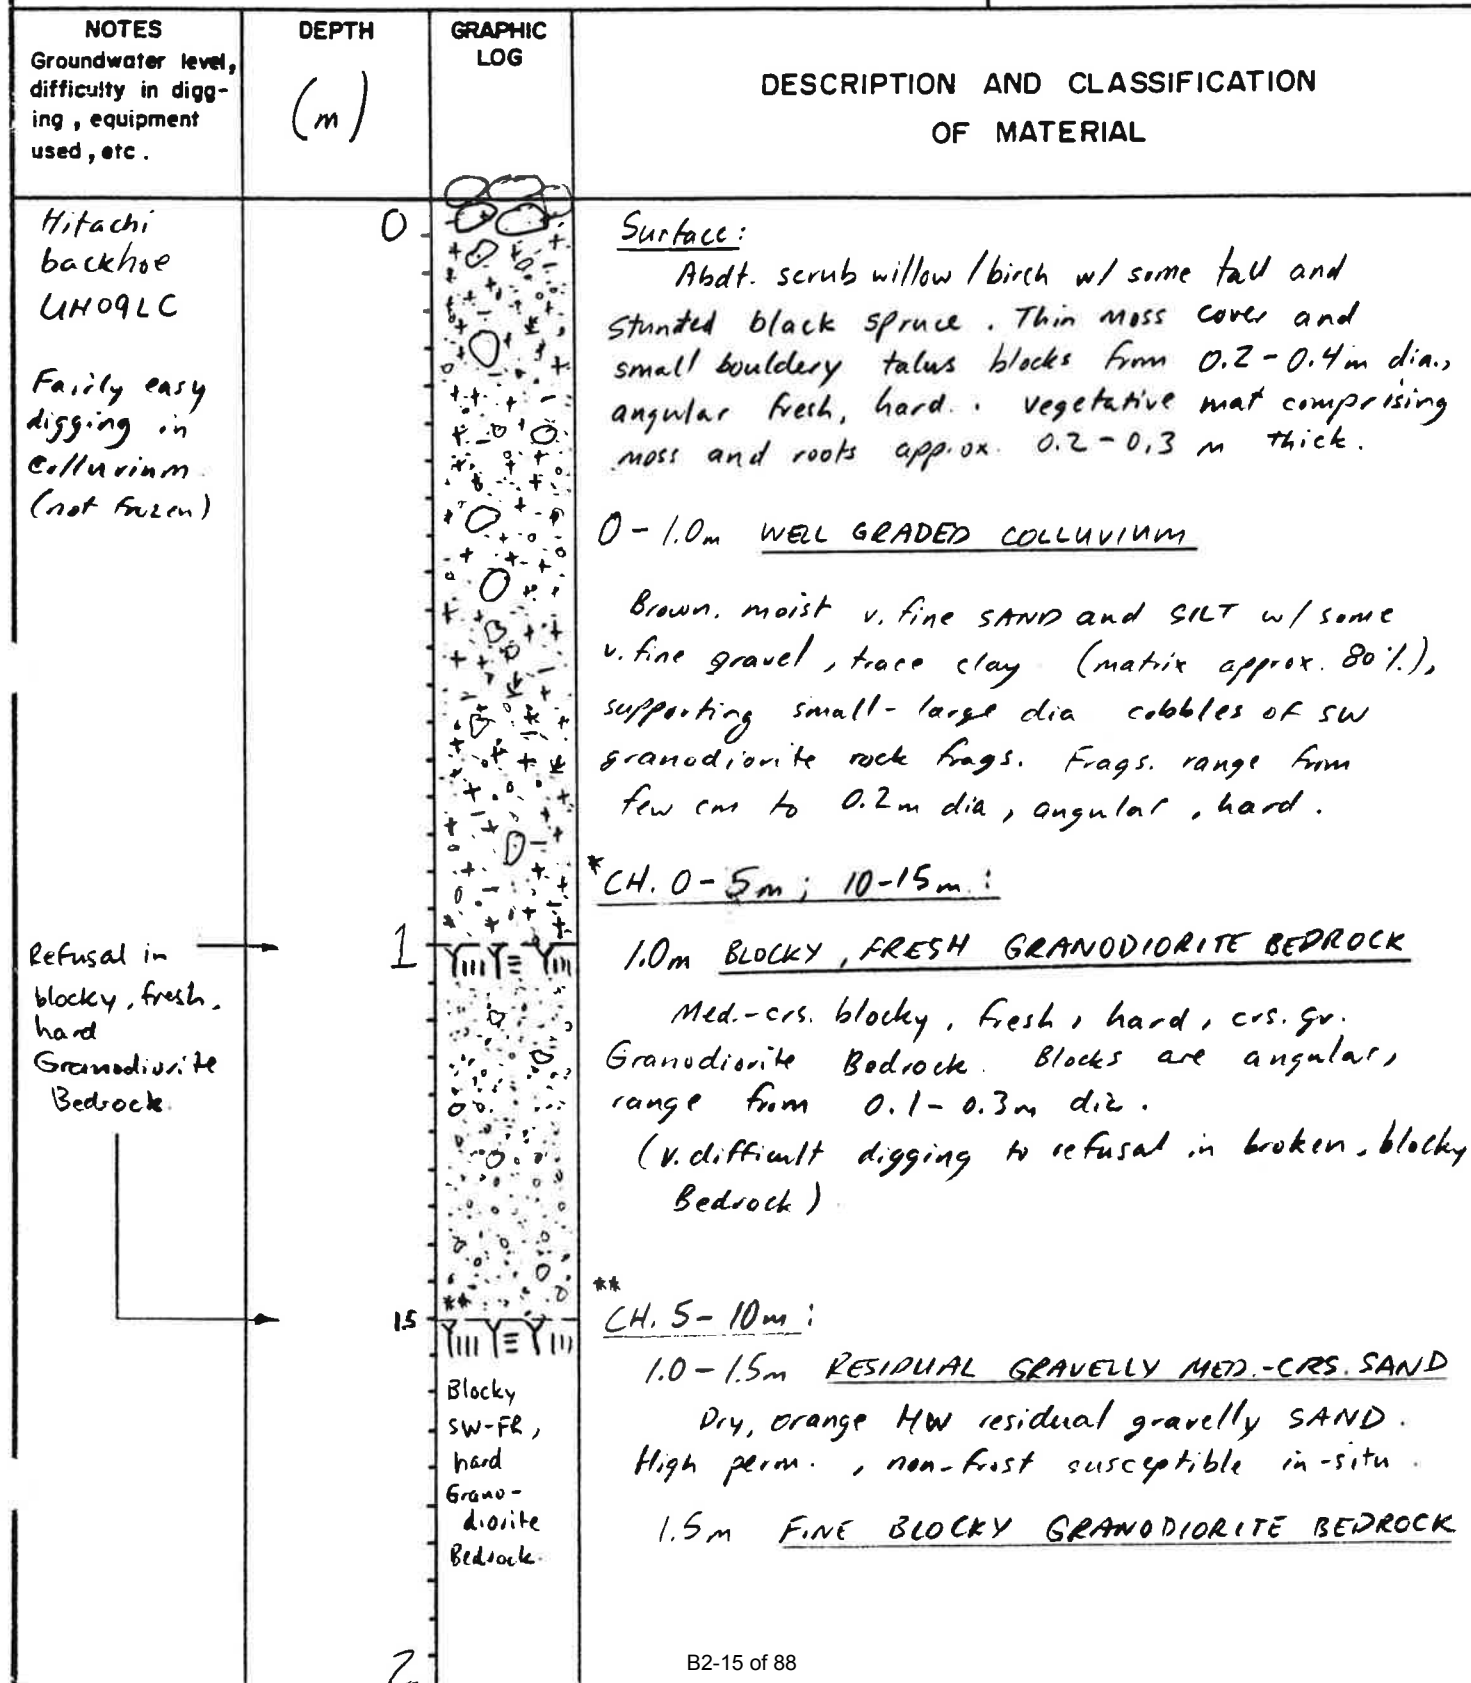 NOTES
Groundwater level,
difficulty in digg-
ing, equipment
used, etc.
DEPTH
(m)
GRAPHIC
LOG
DESCRIPTION AND CLASSIFICATION
OF MATERIAL
Hitachi
backhoe
UH09LC
Fairly easy
digging in
Colluvium.
(not frozen)
Refusal in
blocky, fresh,
hard
Granodiorite
Bedrock.
0
1
1.5
2
Blocky
SW-FR,
hard
Grano-
diorite
Bedrock.
Surface:
Abdt. scrub willow/birch w/ some tall and
stunted black spruce. Thin moss cover and
small bouldery talus blocks from 0.2-0.4m dia.,
angular fresh, hard. Vegetative mat comprising
moss and roots approx. 0.2-0.3 m thick.
0-1.0m WELL GRADED COLLUVIUM
Brown, moist v. fine SAND and SILT w/ some
v. fine gravel, trace clay (matrix approx. 80%),
supporting small-large dia cobbles of SW
granodiorite rock frags. Frags. range from
few cm to 0.2m dia, angular, hard.
*CH. 0-5m; 10-15m:
1.0m BLOCKY, FRESH GRANODIORITE BEDROCK
Med.-crs. blocky, fresh, hard, crs. gr.
Granodiorite Bedrock. Blocks are angular,
range from 0.1-0.3m dia.
(v. difficult digging to refusal in broken, blocky
Bedrock)
**
CH. 5-10m:
1.0-1.5m RESIDUAL GRAVELLY MED.-CRS. SAND
Dry, orange HW residual gravelly SAND.
High perm., non-frost susceptible in-situ.
1.5m FINE BLOCKY GRANODIORITE BEDROCK
**
B2-15 of 88